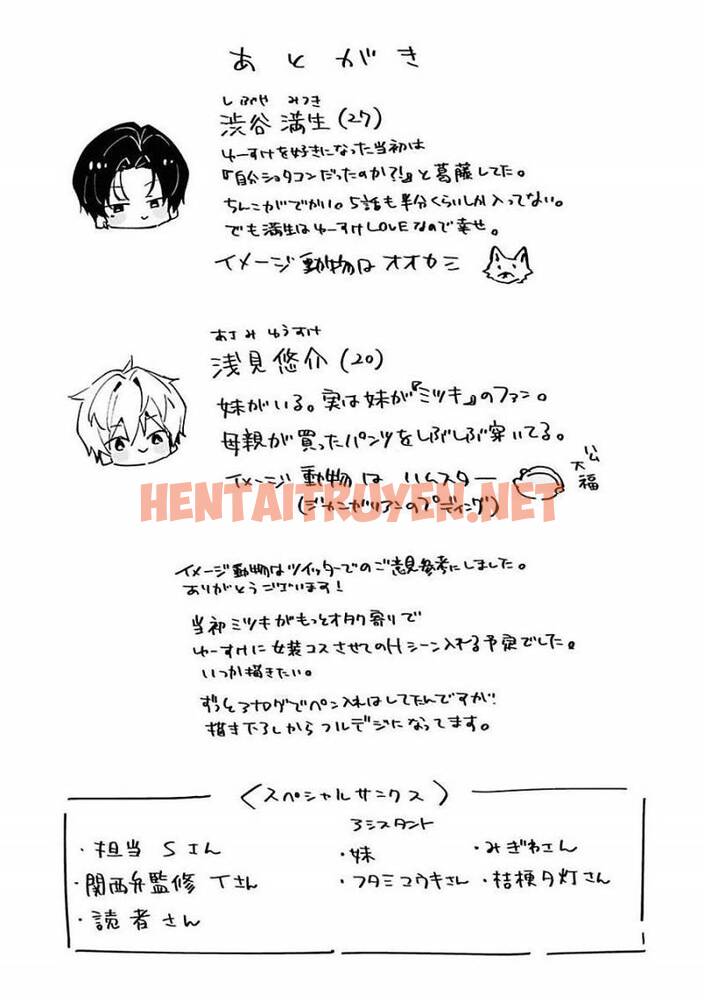 あとがき
しぶや みつき
渋谷 満生(27)
ゆーすけを好きになった当初は
『自分ショタコンだったのか?!』と葛藤してた。
ちんこがでかい。5話も半分くらいしか入ってない。
でも満生はゆーすけLOVEなので幸せ。
イメージ動物はオオカミ
あさみ ゆうすけ
浅見悠介(20)
妹がいる。実は妹が『ミツキ』のファン。
母親が買ったパンツをしぶしぶ穿いてる。
イメージ動物はハムスター
ハム大福
(ジャンガリアンのプディング)
HENTAITRUYEN.NET
イメージ動物はツイッターでのご意見参考にしました。
ありがとうございます!
当初ミツキがもっとオタク寄りで
ゆーすけに女装コスさせてのHシーン入れる予定でした。
いつか描きたい。
ずっとアナログでペン入れはしてたんですが!
描き下ろしからフルデジになってます。
〈スペシャルサンクス〉
アシスタント
・担当 Sさん ・妹 ・みぎわさん
・関西弁監修 Tさん ・フタミユウキさん ・桔梗夕灯さん
・読者さん